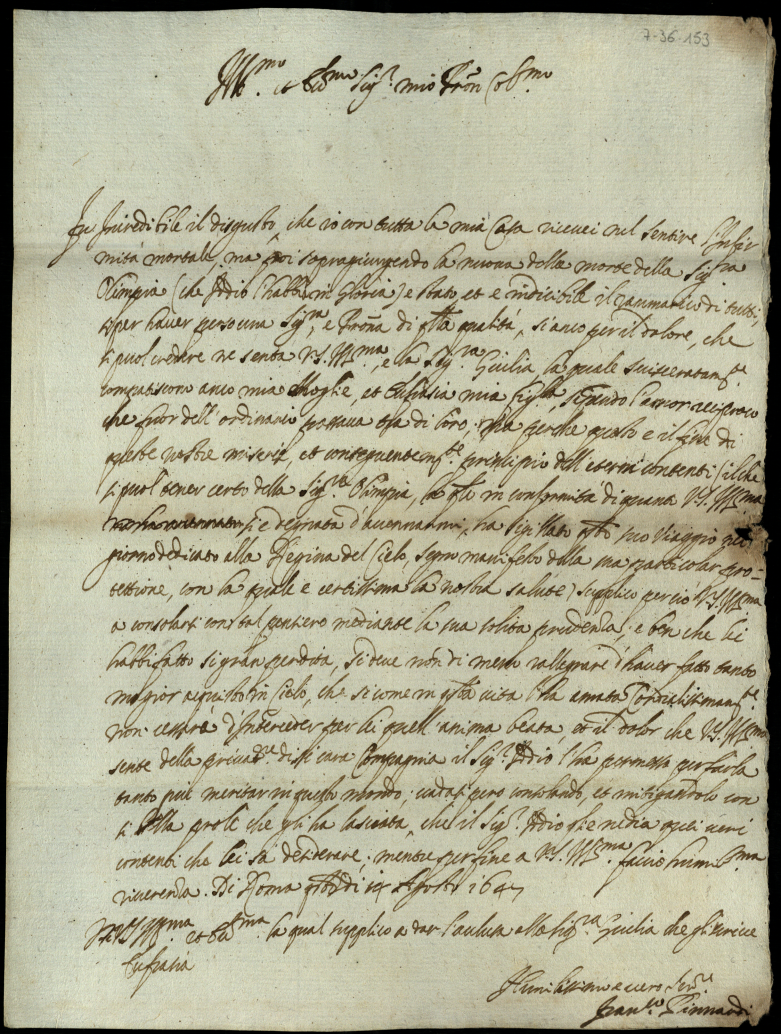 7-36-153
Ill.mo et Ecc.mo Sig.r mio Pron Col.mo
Fu Incredibile il disgusto, che io con tutta la mia Casa ricevei nel sentire l'Infir
mità mortale, ma poi sopragiungendo la nuova della morte della Sig.ra
Olimpia (che Iddio l'habbi in Gloria) e stato, et e indicibile il ramarico di tutti,
si per haver perso una Sig.ra, e Prona di qsta qualità, si anco per il dolore, che
si puol credere ne senta V.S. Ill.ma, e la Sig.ra Giulia, la quale suisceratam.te
compatiscono anco mia Moglie, et Eufrasia mia figlia, stando l'amor reciproco
che fuor dell'ordinario passava tra di loro, ma perche questo e il fine di
queste nostre miserie, et conseguentem.te principio dell'eterni contenti (il che
si puol tener certo della Sig.ra Olimpia, la qle in conformità di quanto V.S. Ill.ma
si e degnata d'accennarmi, ha sigillato qsto suo viaggio nel
giorno dedicato alla Regina del Cielo, segno manifesto della sua particolar pro-
tettione, con la quale e certissima la nostra salute) supplico perciò V.S. Ill.ma
a consolarsi con tal pensiero mediante la sua solita prudenza, e ben che lei
habbi fatto si gran perdita, si deve non di meno rallegrare d'haver fatto tanto
magior acquisto in Cielo, che si come in qsta vita l'ha amata Cordialissimam.te
non cessarà d'Interceder per lei quell'anima beata, et il dolor che V.S. Ill.ma
sente della privat.ne di si cara Compagnia il Sig.r Iddio l'ha permesso per farla
tanto più meritar in questo mondo; vadasi però consolando, et mitigandolo con
la prole che gli ha lasciata, che il Sig.r Iddio gliene dia quei veri
contenti che lei sà desiderare; mentre per fine a V.S. Ill.ma faccio humil.ma
riverenza. Di Roma qsto di 14 Agosto 1647
Di V.S. Ill.ma et Ecc.ma la qual supplico a dar l'acclusa alla Sig.ra Giulia che gli scrive
Eufrasia
Humilissimo e vero Ser.re
Fran.co